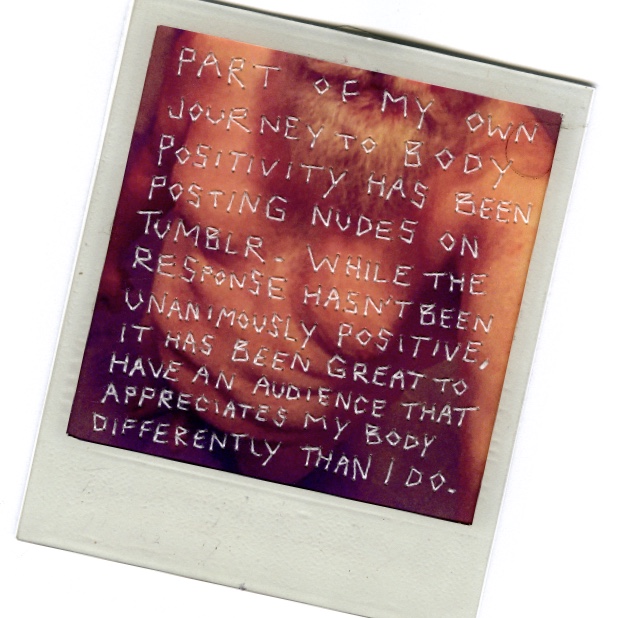 PART OF MY OWN
JOURNEY TO BODY
POSITIVITY HAS BEEN
POSTING NUDES ON
TUMBLR. WHILE THE
RESPONSE HASN'T BEEN
UNANIMOUSLY POSITIVE,
IT HAS BEEN GREAT TO
HAVE AN AUDIENCE THAT
APPRECIATES MY BODY
DIFFERENTLY THAN I DO.